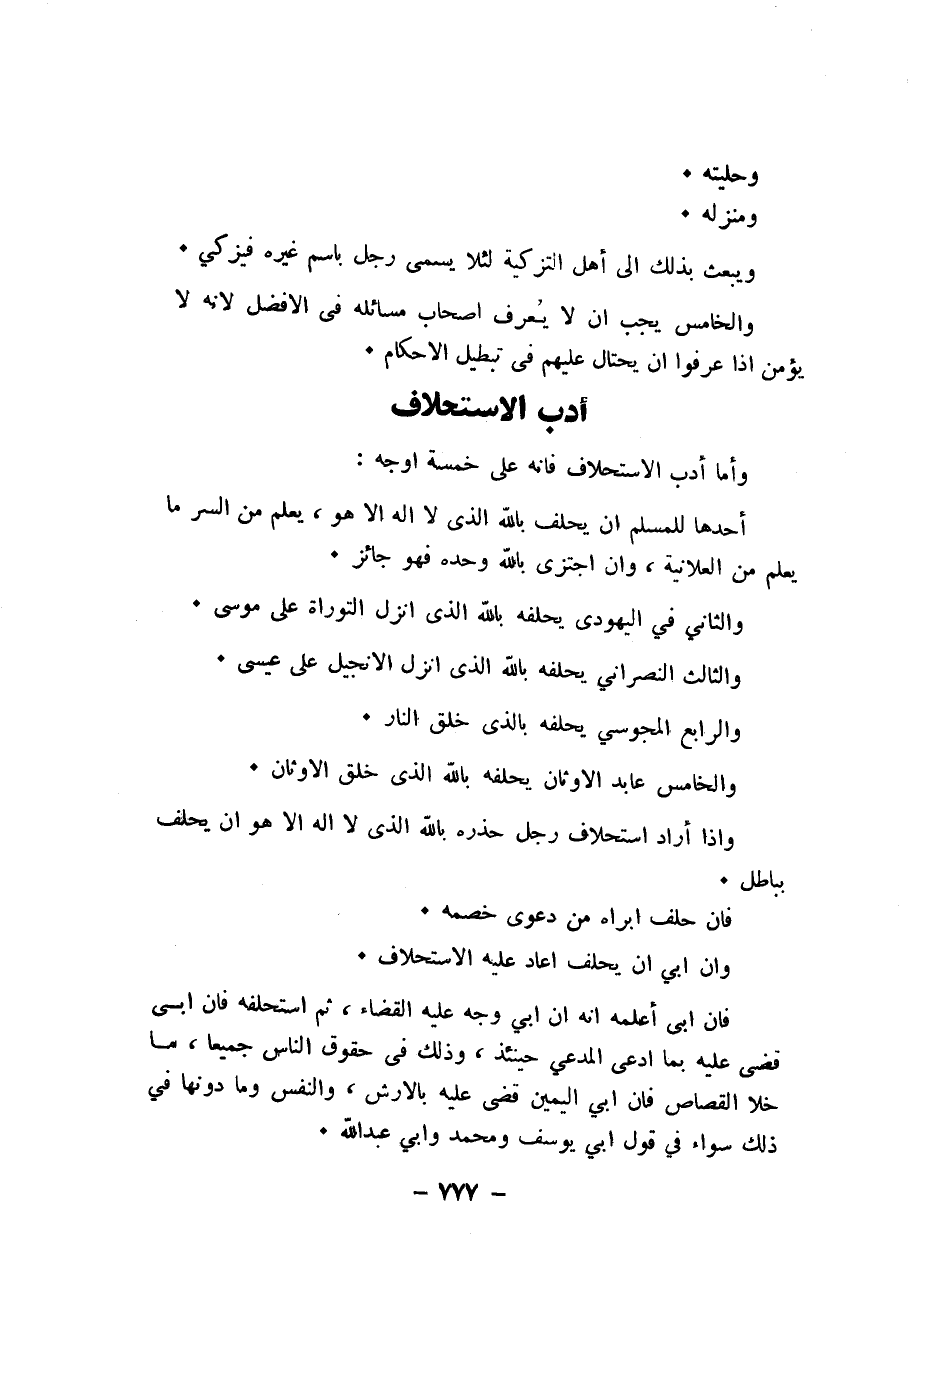 وحليته •
ومنزله •
ويبعث بذلك الى أهل التزكية لئلا يسمى رجل باسم غيره فيزكي •
والخامس يجب ان لا يُعرف اصحاب مسائله فى الافضل لانه لا
يؤمن اذا عرفوا ان يحتال عليهم فى تبطيل الاحكام •
أدب الاستحلاف
وأما أدب الاستحلاف فانه على خمسة اوجه :
أحدها للمسلم ان يحلف بالله الذى لا اله الا هو ، يعلم من السر ما
يعلم من العلانية ، وان اجتزى بالله وحده فهو جائز •
والثاني في اليهودى يحلفه بالله الذى انزل التوراة على موسى •
والثالث النصراني يحلفه بالله الذى انزل الانجيل على عيسى •
والرابع المجوسي يحلفه بالذى خلق النار •
والخامس عابد الاوثان يحلفه بالله الذى خلق الاوثان •
واذا أراد استحلاف رجل حذره بالله الذى لا اله الا هو ان يحلف
بباطل •
فان حلف ابراه من دعوى خصمه •
وان ابي ان يحلف اعاد عليه الاستحلاف •
فان ابى أعلمه انه ان ابي وجه عليه القضاء ، ثم استحلفه فان ابــى
قضى عليه بما ادعى المدعي حينئذ ، وذلك فى حقوق الناس جميعا ، مــا
خلا القصاص فان ابي اليمين قضى عليه بالارش ، والنفس وما دونها في
ذلك سواء في قول ابي يوسف ومحمد وابي عبدالله •
– ٧٧٧ –